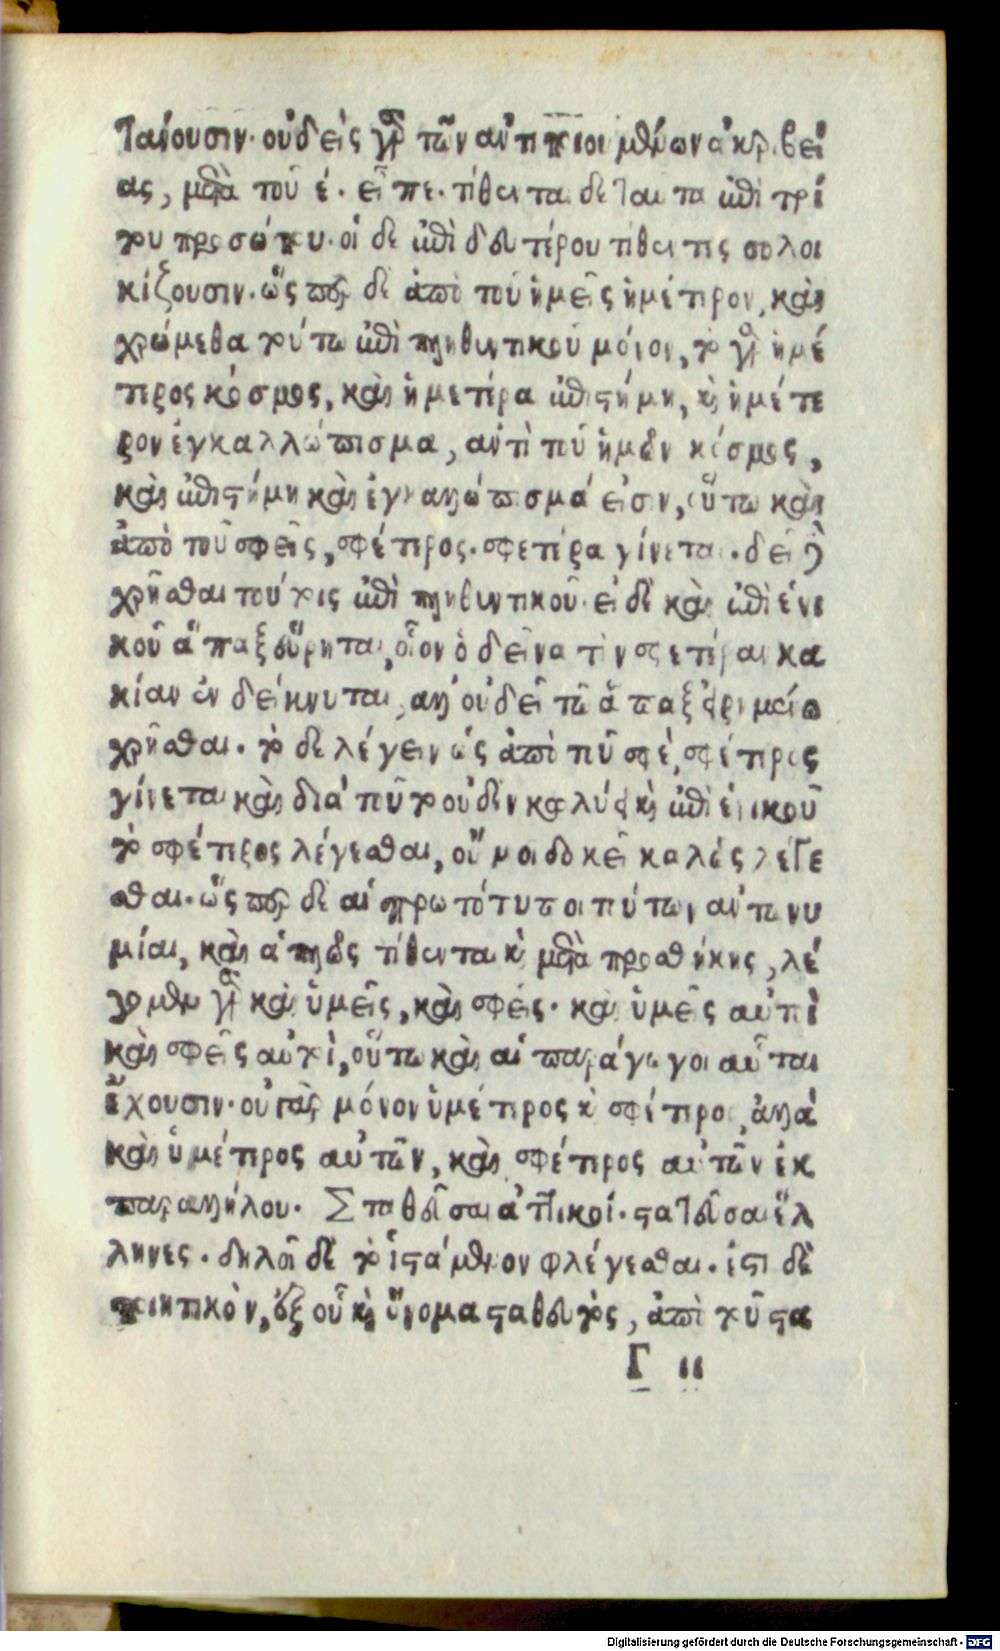 τάνουσιν. οὐδεὶς γὰρ τῶν ἀντιποιουμένων ἀκριβεί
ας, μετὰ τοῦ ε. εἶπε. τίθενται δὲ ταῦτα ἐπὶ τρί
του προσώπου. οἱ δὲ ἐπὶ δευτέρου τιθέντες σολοι
κίζουσιν. ὥσπερ δὲ ἀπὸ τοῦ ἡμεῖς ἡμέτερον, καὶ
χρώμεθα τούτω ἐπὶ πληθυντικοῦ μόνον, τὸ γὰρ ἡμέ
τερος κόσμος, καὶ ἡμετέρα ἐπιστήμη, καὶ ἡμέτε
ρον ἐγκαλλώπισμα, ἀντὶ τοῦ ἡμῶν κόσμος,
καὶ ἐπιστήμη καὶ ἐγκαλλώπισμά ἐστιν, οὕτω καὶ
ἀπὸ τοῦ σφεῖς, σφέτερος. σφετέρα γίνεται. δεῖ δὲ
χρῆσθαι τούτοις ἐπὶ πληθυντικοῦ. εἰ δὲ καὶ ἐπὶ ἑνι
κοῦ ἅπαξ εὕρηται, οἷον ὁ δεῖνα τὴν σφετέραν κα
κίαν ἐνδείκνυται, ἀλλ' οὐ δεῖ τῷ ἅπαξ εἰρημένω
χρῆσθαι. τὸ δὲ λέγειν ὡς ἀπὸ τοῦ σφέ, σφέτερος
γίνεται καὶ διὰ τοῦτο οὐδὲν κωλύει καὶ ἐπὶ ἑνικοῦ
τὸ σφέτερος λέγεσθαι, οὔ μοι δοκεῖ καλῶς λέγε
σθαι. ὥσπερ δὲ αἱ πρωτότυποι τούτων ἀντωνυ
μίαι, καὶ ἁπλῶς τίθενται καὶ μετὰ προσθήκης, λέ
γομεν γὰρ καὶ ὑμεῖς, καὶ σφεῖς. καὶ ὑμεῖς αὐτοὶ
καὶ σφεῖς αὐτοὶ, οὕτω καὶ αἱ παράγωγοι αὗται
ἔχουσιν. οὐ γὰρ μόνον ὑμέτερος καὶ σφέτερος, ἀλλὰ
καὶ ὑμέτερος αὐτῶν, καὶ σφέτερος αὐτῶν ἐκ
παραλλήλου. Σταθεῦσαι ἀττικοί. σταθεῦσαι ἕλ
ληνες. δηλοῖ δὲ τὸ ἱστάμενον φλέγεσθαι. ἔστι δὲ
ποιητικὸν, ἐξ οὗ καὶ ὄνομα σταθευτὸς, ἀπὸ τοῦ στα
Γ ιι
Digitalisierung gefördert durch die Deutsche Forschungsgemeinschaft - DFG